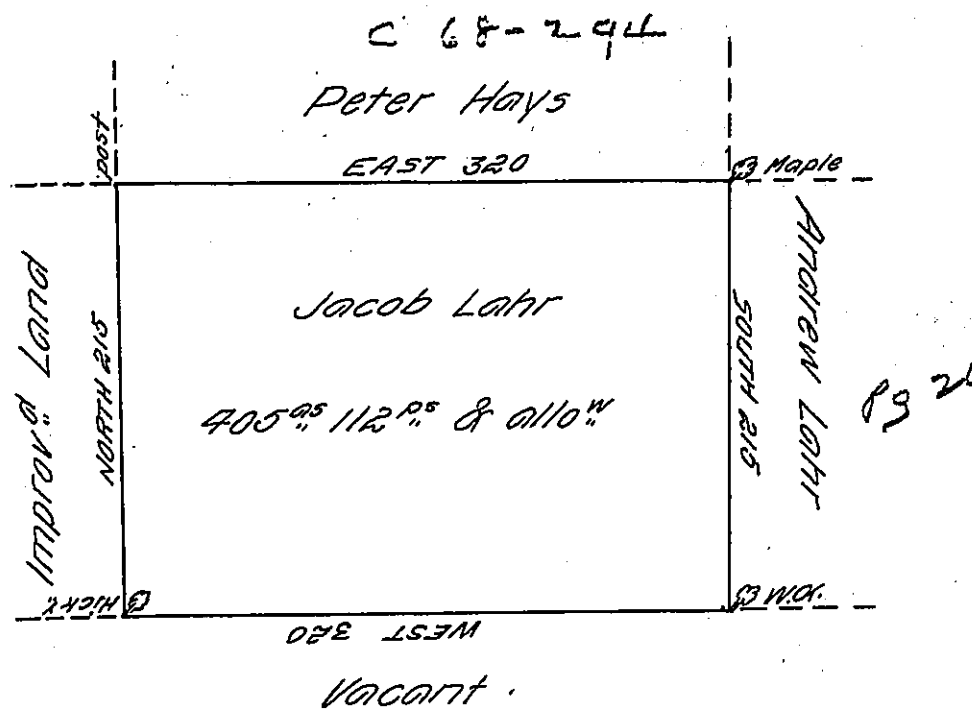 C 68-294
Peter Hays
post
EAST 320
Maple
Improv,,d Land
NORTH 215
Jacob Lahr
405 as,, 112 ps,, & allow,,
SOUTH 215
Andrew Lahr
Pg
Hick'y.
W.O.
WEST 320
Vacant.